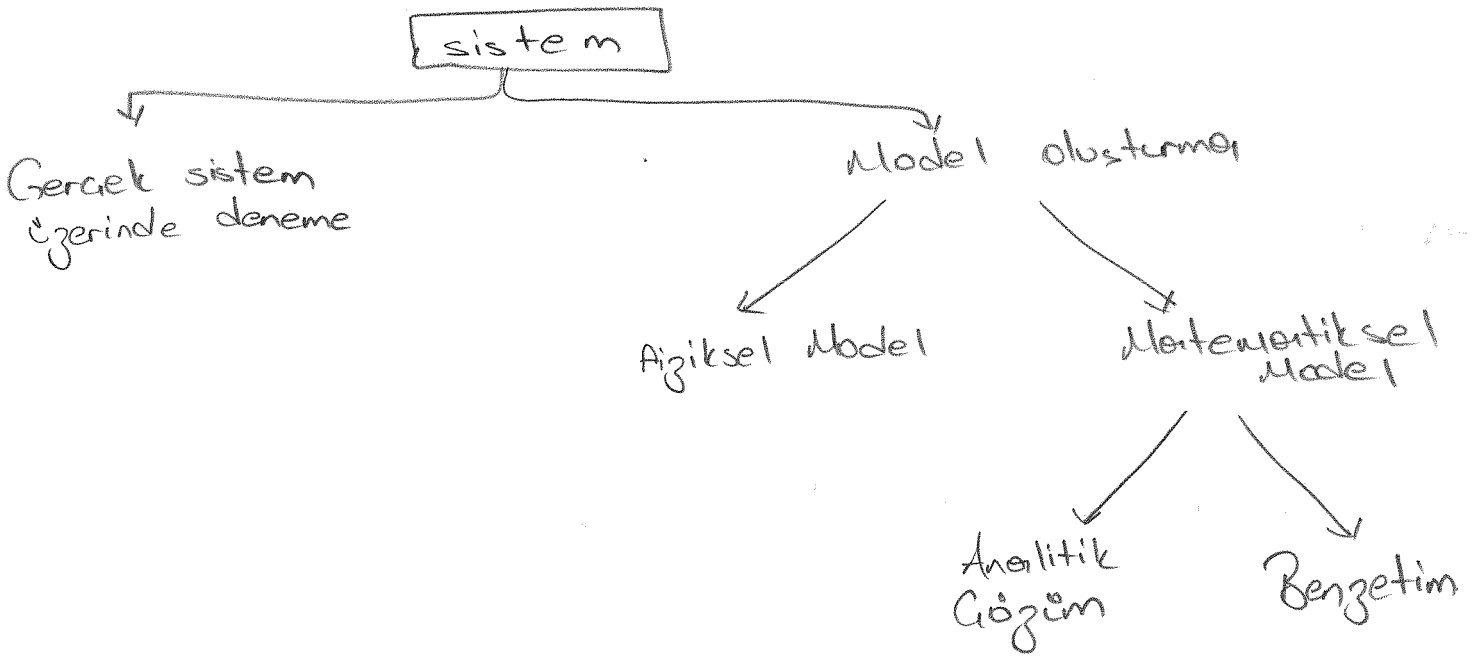 sistem
Gerçek sistem
üzerinde deneme
Model oluşturma
Fiziksel Model
Matematiksel
Model
Analitik
Çözüm
Benzetim